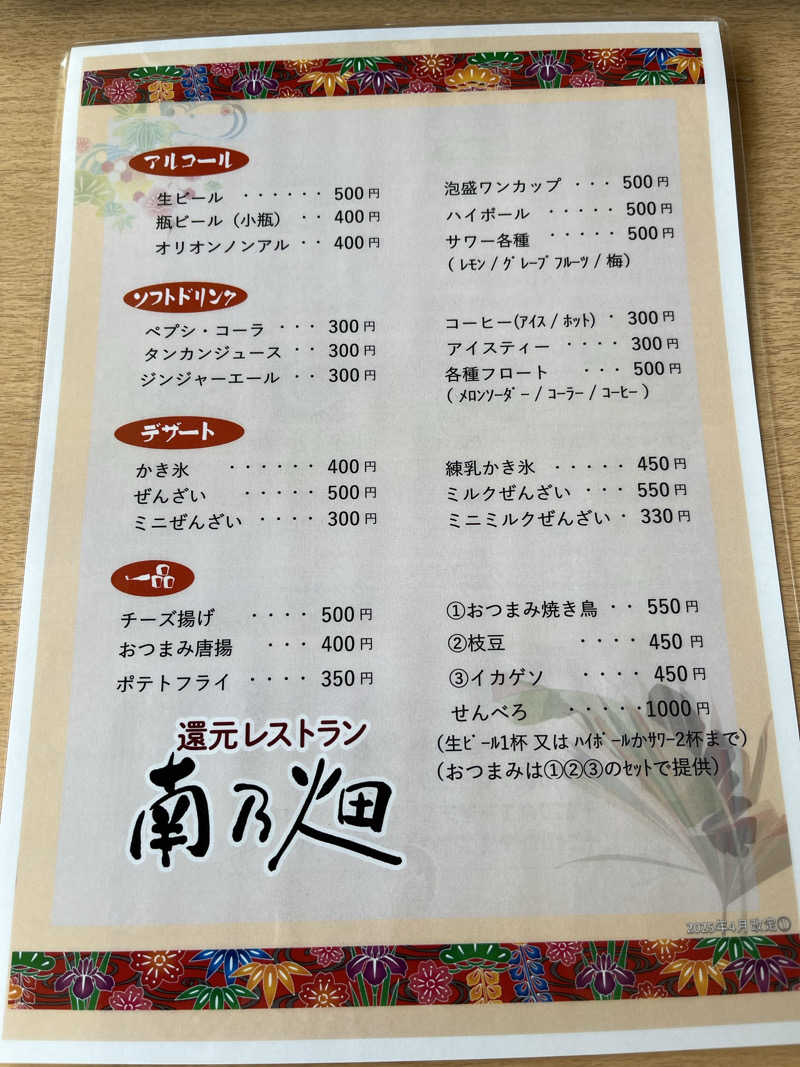 アルコール
生ビール ・・・・・・ 500円
瓶ビール（小瓶） ・・ 400円
オリオンノンアル ・・ 400円
泡盛ワンカップ ・・・ 500円
ハイボール ・・・・・ 500円
サワー各種 ・・・・・ 500円
（ ﾚﾓﾝ / ｸﾞﾚｰﾌﾟﾌﾙｰﾂ / 梅）
ソフトドリンク
ペプシ・コーラ ・・・ 300円
タンカンジュース ・・ 300円
ジンジャーエール ・・ 300円
コーヒー(ｱｲｽ / ﾎｯﾄ) ・ 300円
アイスティー ・・・・ 300円
各種フロート ・・・ 500円
（ ﾒﾛﾝｿｰﾀﾞｰ / ｺｰﾗｰ / ｺｰﾋｰ ）
デザート
かき氷 ・・・・・・ 400円
ぜんざい ・・・・・ 500円
ミニぜんざい ・・・・ 300円
練乳かき氷 ・・・・・ 450円
ミルクぜんざい ・・・ 550円
ミニミルクぜんざい ・ 330円
一品
チーズ揚げ ・・・・ 500円
おつまみ唐揚 ・・・ 400円
ポテトフライ ・・・・ 350円
①おつまみ焼き鳥 ・・ 550円
②枝豆 ・・・・ 450円
③イカゲソ ・・・・ 450円
せんべろ ・・・・・1000円
（生ﾋﾞｰﾙ1杯 又は ﾊｲﾎﾞｰﾙかｻﾜｰ2杯まで）
（おつまみは①②③のｾｯﾄで提供）
還元レストラン
南乃畑
2025年4月改定